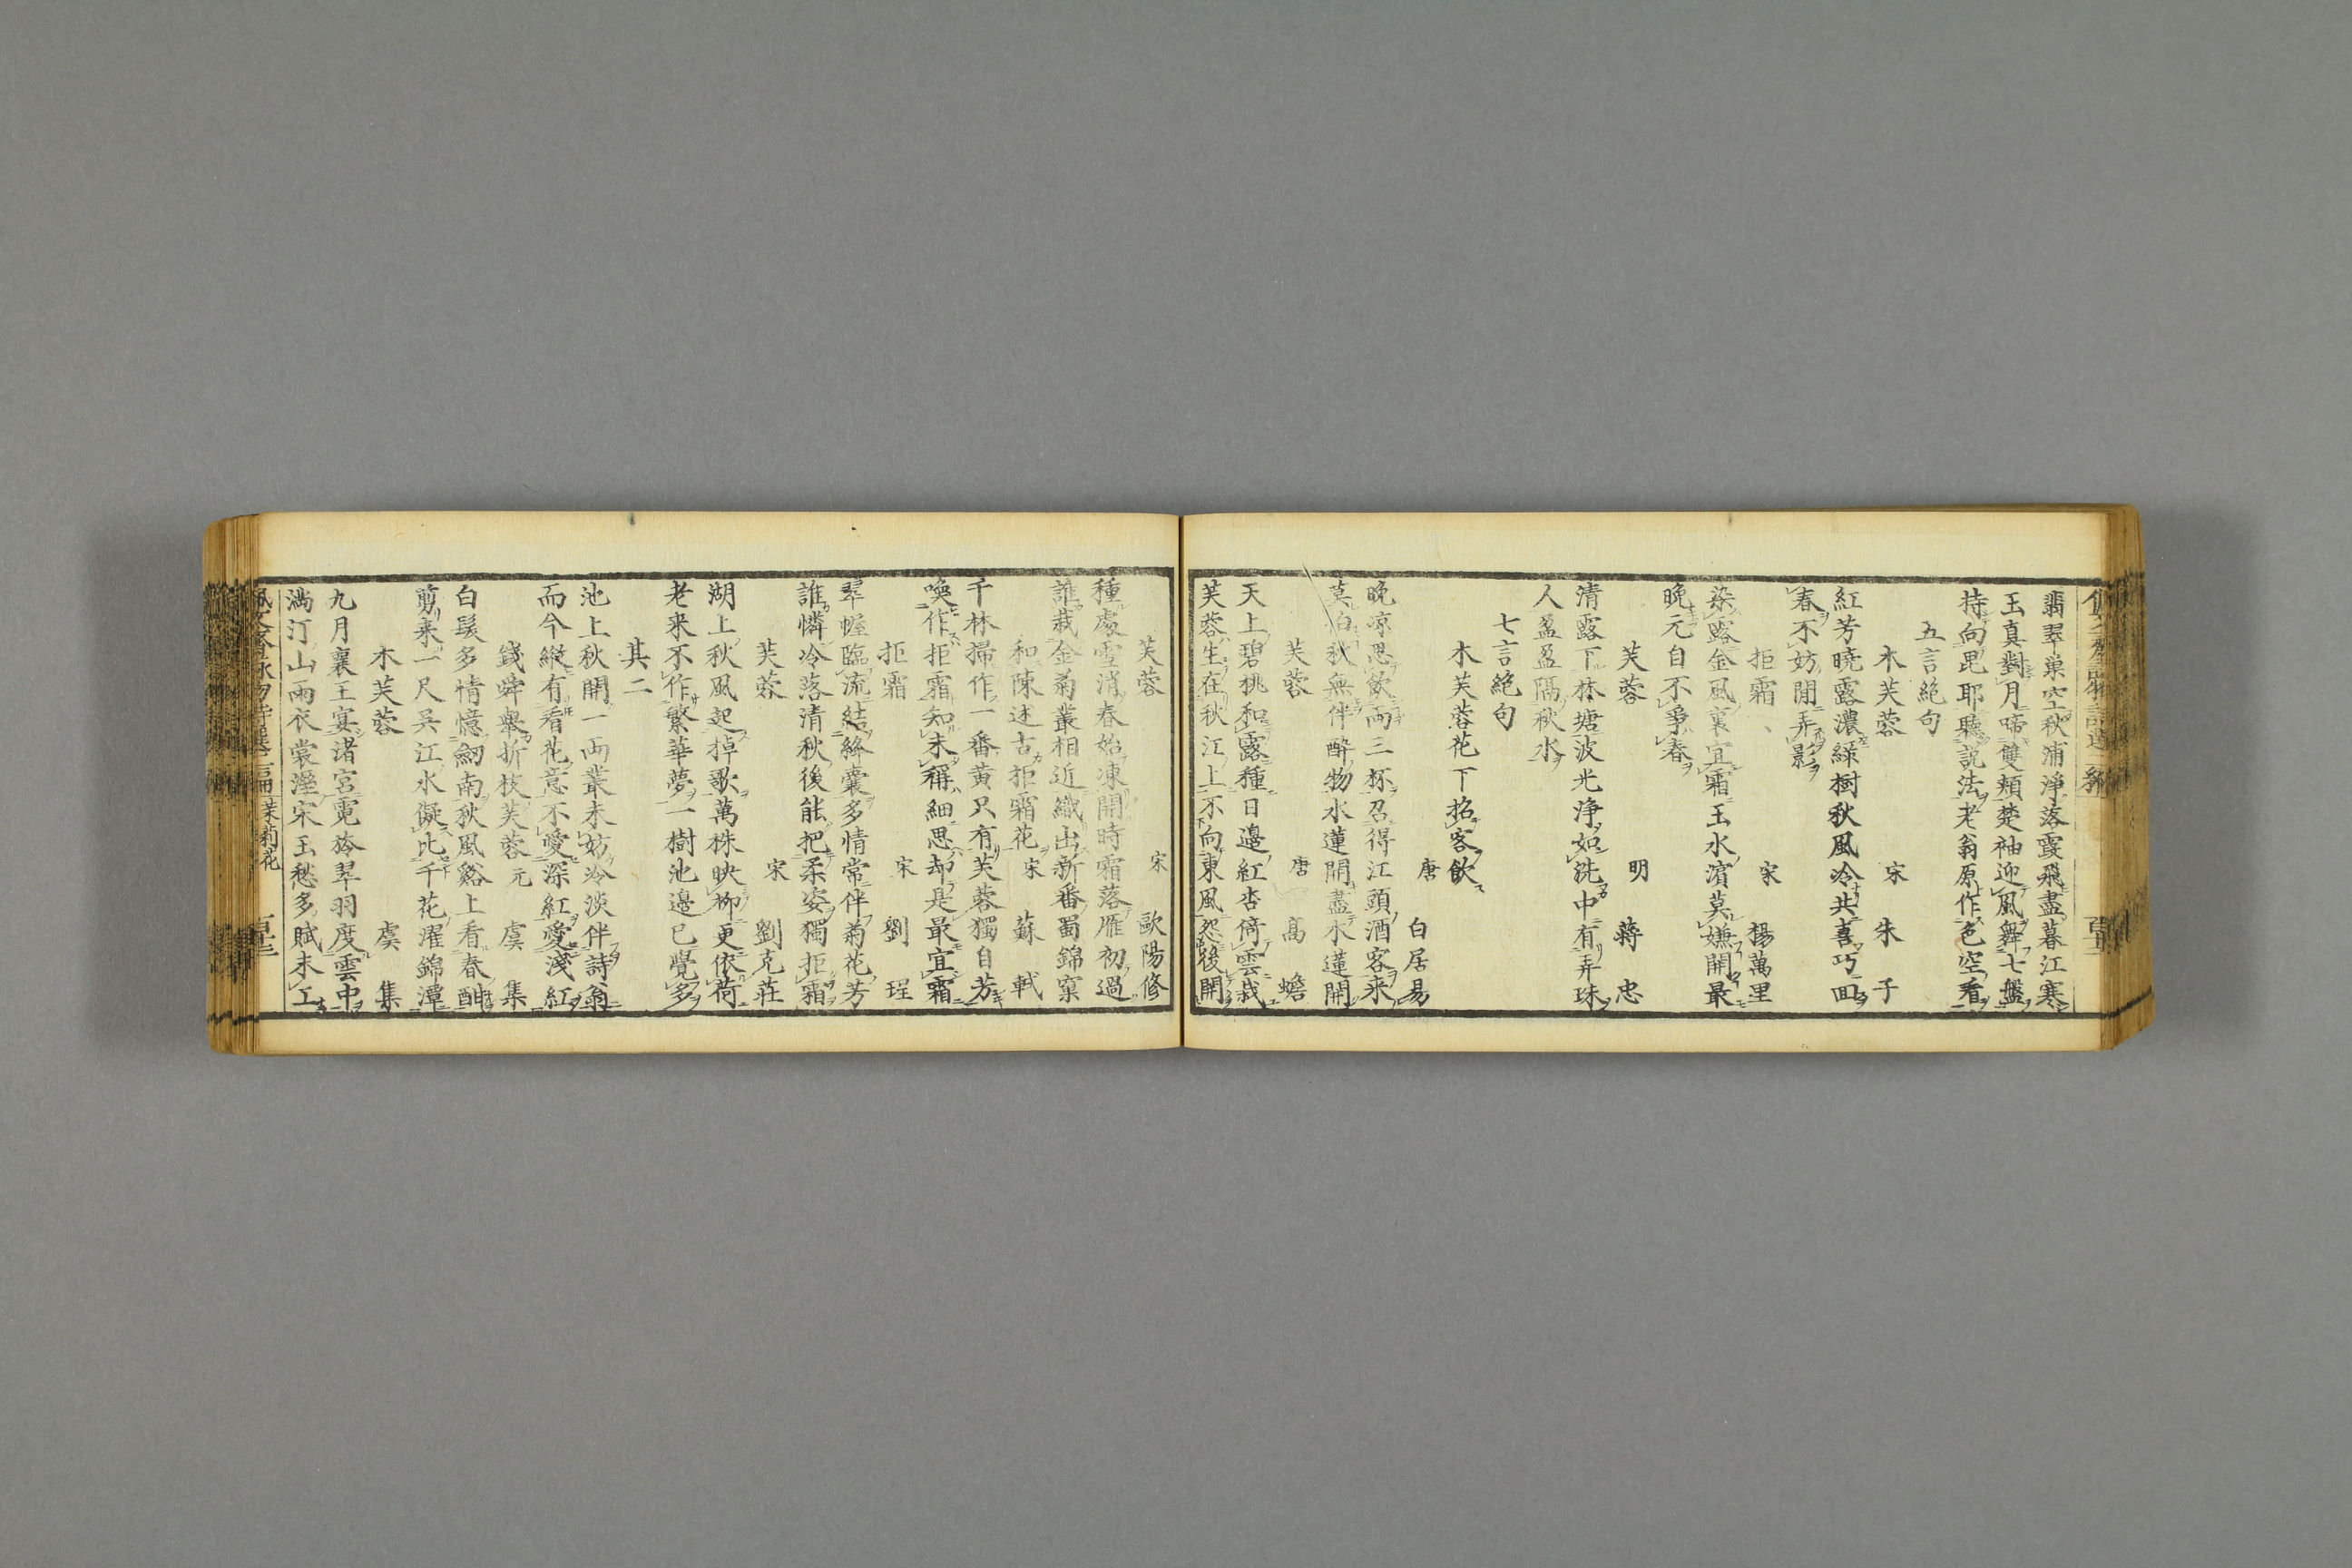 翡翠巢空秋浦淨落霞飛盡暮江寒
玉真對月啼雙頰楚袖迎風舞七盤
持向毘耶聽說法老翁原作色空看
五言絕句
木芙蓉 宋 朱子
紅芳曉露濃綠樹秋風冷共喜巧回
春不妨閒弄影
拒霜 宋 楊萬里
染露金風裏宜霜玉水濱莫嫌開最
晚元自不爭春
芙蓉 明 蔣忠
清露下林塘波光淨如洗中有弄珠
人盈盈隔秋水
七言絕句
木芙蓉花下招客飲
唐 白居易
晚涼思飲兩三杯召得江頭酒客来
莫怕秋無伴醉物水蓮開盡木蓮開
芙蓉 唐 高蟾
天上碧桃和露種日邊紅杏倚雲栽
芙蓉生在秋江上不向東風怨後開
芙蓉 宋 歐陽修
種處雪消春始凍開時霜落雁初過
誰栽金菊叢相近織出新番蜀錦窠
和陳述古拒霜花 宋 蘇軾
千林掃作一番黃只有芙蓉獨自芳
喚作拒霜知未稱細思却是最宜霜
拒霜 宋 劉珵
翠幄臨流結絳囊多情常伴菊花芳
誰憐冷落清秋後能把柔姿獨拒霜
芙蓉 宋 劉克莊
湖上秋風起棹歌萬株映柳更依荷
老来不作繁華夢一樹池邊已覺多
其二
池上秋開一兩叢未妨冷淡伴詩翁
而今縱有看花意不愛深紅愛淺紅
錢舜舉折枝芙蓉 元 虞集
白髮多情憶劒南秋風谿上看春酣
剪来一尺吳江水儗比千花濯錦潭
木芙蓉 虞集
九月襄王宴渚宮霓旌翠羽度雲中
滿汀山雨衣裳溼宋玉愁多賦未工